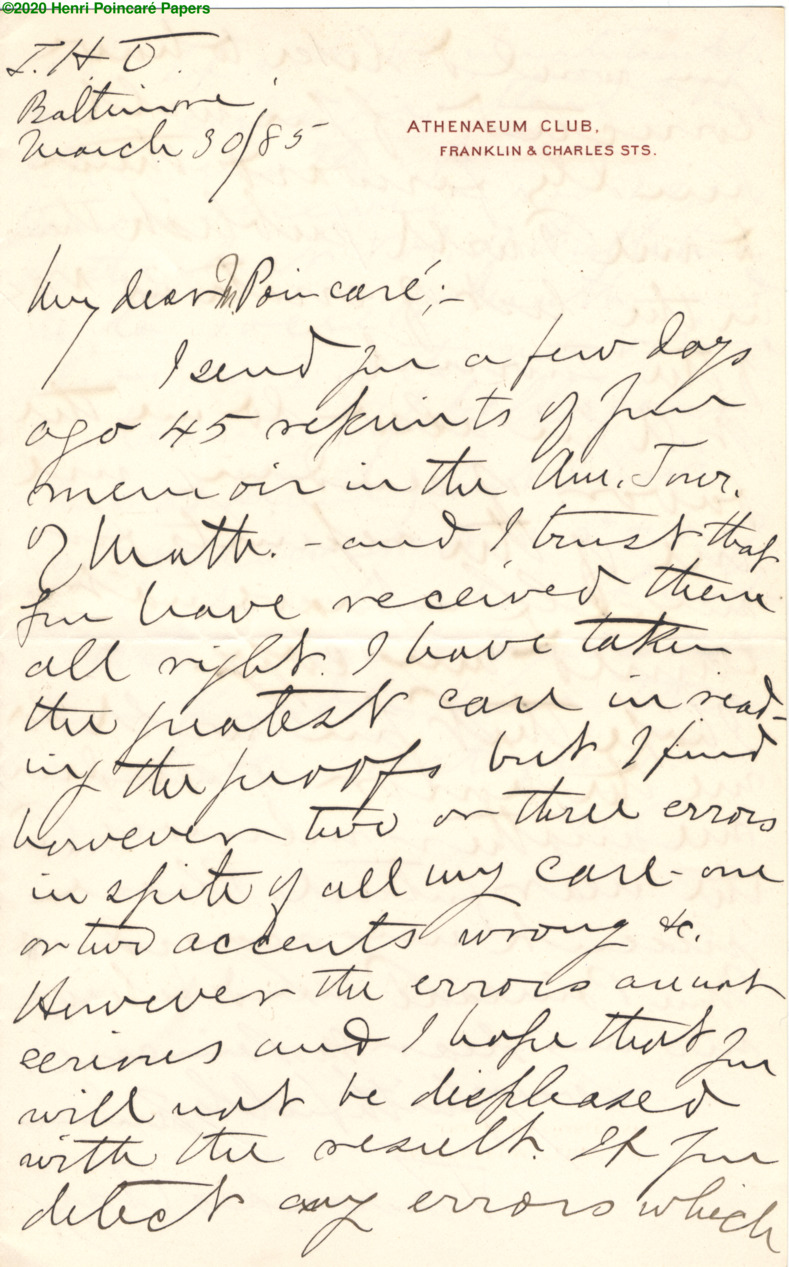 ©2020 Henri Poincaré Papers
J. H. U.
Baltimore,
March 30/85
ATHENAEUM CLUB,
FRANKLIN & CHARLES STS.
My dear M Poincaré;–
I send you a few days
ago 45 reprints of your
memoir in the Am. Jour.
of Math. – and I trust that
you have received them
all right. I have taken
the greatest care in read-
ing the proofs but I find
however two or three errors
in spite of all my care – one
or two accents wrong &c.
However the errors are not
serious and I hope that you
will not be displeased
with the result. If you
detect any errors which